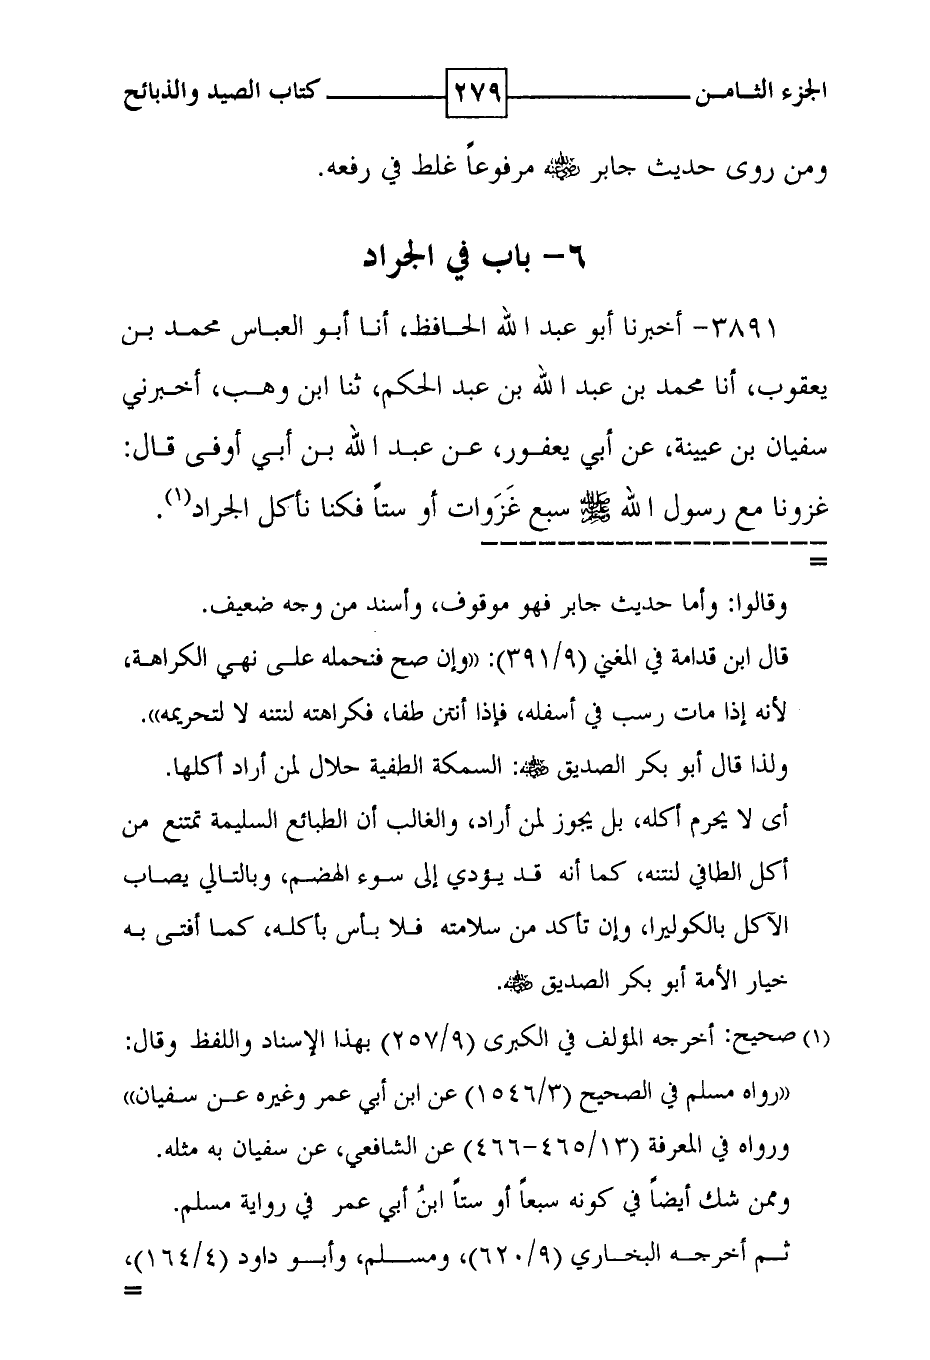 الجزء الثامن ٢٧٩ كتاب الصيد والذبائح
ومن روى حديث جابر رضي الله عنه مرفوعاً غلط في رفعه.
٦- باب في الجراد
٣٨٩١- أخبرنا أبو عبد الله الحافظ، أنا أبو العباس محمد بن
يعقوب، أنا محمد بن عبد الله بن عبد الحكم، ثنا ابن وهب، أخبرني
سفيان بن عيينة، عن أبي يعفور، عن عبد الله بن أبي أوفى قال:
غزونا مع رسول الله ﷺ سبع غَزَوات أو ستاً فكنا نأكل الجراد(١).
=
وقالوا: وأما حديث جابر فهو موقوف، وأسند من وجه ضعيف.
قال ابن قدامة في المغني (٣٩١/٩): «وإن صح فنحمله على نهي الكراهة،
لأنه إذا مات رسب في أسفله، فإذا أنتن طفا، فكراهته لنتنه لا لتحريمه».
ولذا قال أبو بكر الصديق رضي الله عنه: السمكة الطفية حلال لمن أراد أكلها.
أى لا يحرم أكله، بل يجوز لمن أراد، والغالب أن الطبائع السليمة تمتنع من
أكل الطافي لنتنه، كما أنه قد يؤدي إلى سوء الهضم، وبالتالي يصاب
الآكل بالكوليرا، وإن تأكد من سلامته فلا بأس بأكله، كما أفتى به
خيار الأمة أبو بكر الصديق رضي الله عنه.
(١) صحيح: أخرجه المؤلف في الكبرى (٢٥٧/٩) بهذا الإسناد واللفظ وقال:
«رواه مسلم في الصحيح (١٥٤٦/٣) عن ابن أبي عمر وغيره عن سفيان»
ورواه في المعرفة (٤٦٥/١٣-٤٦٦) عن الشافعي، عن سفيان به مثله.
وممن شك أيضاً في كونه سبعاً أو ستاً ابنُ أبي عمر في رواية مسلم.
ثم أخرجه البخاري (٦٢٠/٩)، ومسلم، وأبو داود (١٦٤/٤)،
=